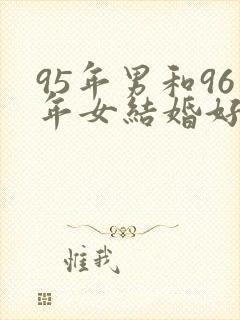 95年男和96
年女结婚好
惟我